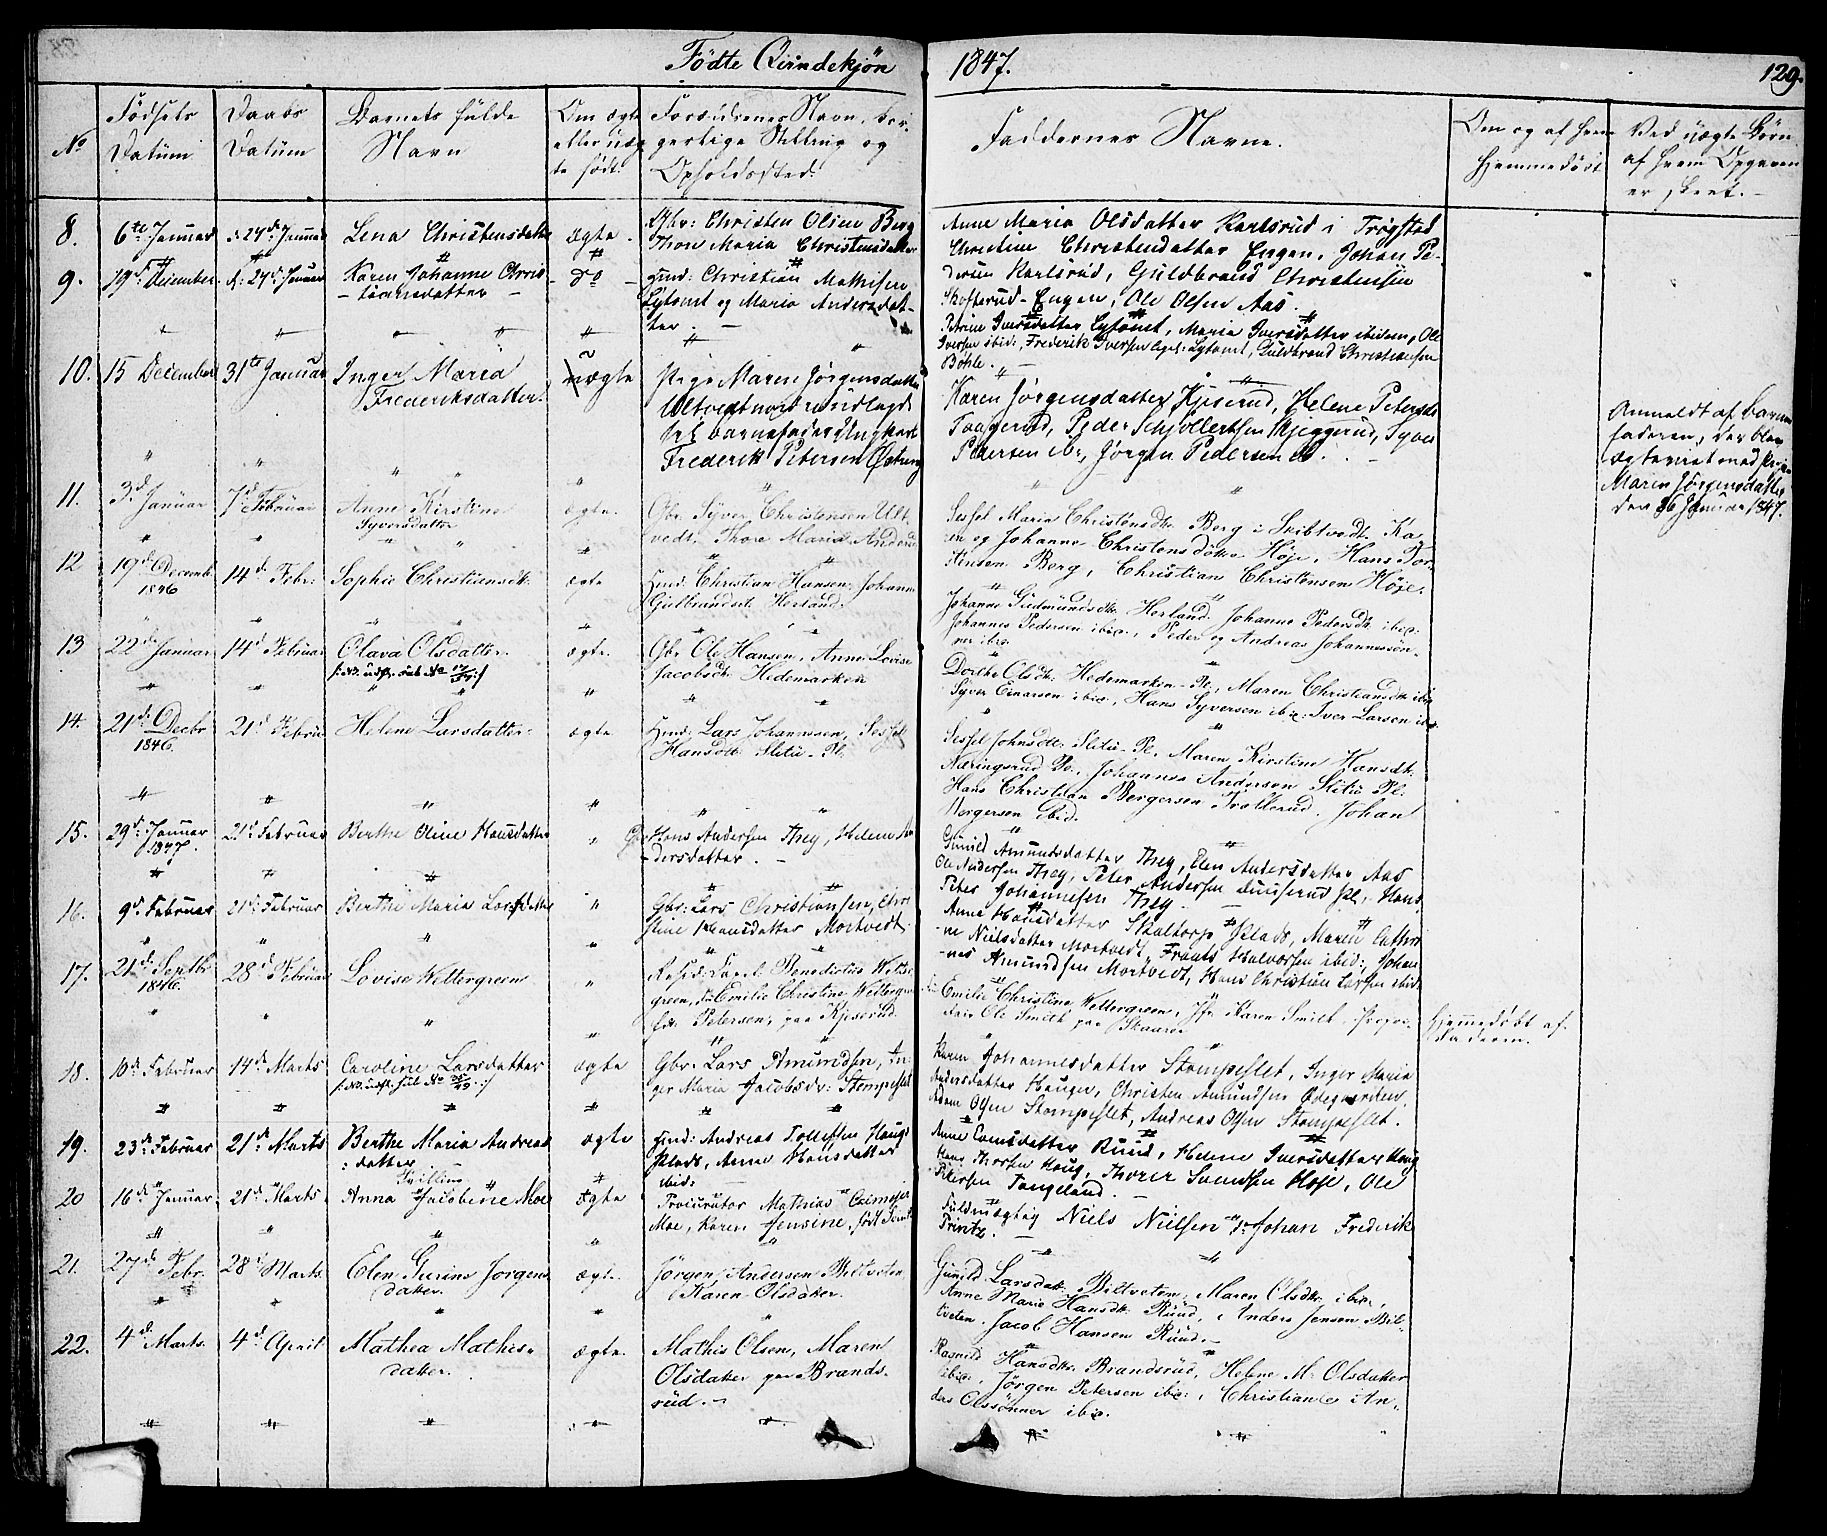 Födte Qvindekjön 1847. 129.
No
Födsels Datum
Daabs Datum
Barnets fulde Navn
Om ægte eller uægte födt.
Forældrenes Navn, borgerlige Stilling og Opholdssted.
Faddernes Navne.
Om og af hvem Hjemmedöbt
Ved uægte Börn af hvem Opgaven er skeet.
8. 6te Januar 24d. Januar Lena Christensdatter ægte
Christen Olsen Berg
Thon Maria Christensdatter
Anne Maria Olsdatter Karlsrud i Trøgstad
Christine Christensdatter Engen, Johan Pe-
dersen Karlsrud, Guldbrand Christensen
Skofterud-Engen, Ole Olsen Aas.
9. 19d. December 24d. Januar Karen Johanne Chris-
tiansdatter do
Hmd: Christian Mathisen
Lytomt og Maria Andersdat-
ter.
Petrine Iversdatter Lytomt, Maria Iversdatter ibidem, Ole
Iversen ibid:, Frederik Iversen Lytomt, Guldbrand Christiansen
Böhle.
10. 15 December 31te Januar Inger Maria
Frederiksdatter uægte
Pige Maren Jörgensdatter
Ultvedt
Frederik Petersen
Karen Jörgensdatter Kjserud, Helene Petersdr
Taagerud, Peder Schjollertsen Skjeggerud, Syver
Pedersen ib:, Jörgen Pedersen ib.
Anmeldt af Barne-
faderen, der blev
ægteviet med Pige
Maren Jörgensdatter
den 26 Januar 1847.
11. 3d Januar 7d Februar Anne Kirstine
Syversdatter ægte.
Gbr. Syver Christensen Ult-
vedt. Thore Maria Anders
Sessel Maria Christensdtr. Berg i Ka-
ren og Johanne Christensdöttre Höje, Hans Tor-
stensen Berg, Christian Christensen Höje.
12 19d Decemb. 1846 14d Febr. Sophie Christiansdt: ægte
Hmd: Christian Hansen. Johanne
Gulbrandsdt. Herland.
Johanne Gudmundsdt. Herland. Johanne Pedersdt. ibid:
Johannes Pedersen ibid:, Peder og Andreas Johannessön-
ner ibid.
13 22d Januar 14d Februar Olava Olsdatter. ægte.
Gbr. Ole Hansen, Anne Lovise
Jacobsdt. Hedemarken
Dorthe Olsdt. Hedemarken-Pl., Maren Christiansdt. ibid
Syver Einarsen ibid:, Hans Syversen ibid: Iver Larsen ibid.
14. 21d. Decbr 1846. 21d Februar Helene Larsdatter. ægte
Hmd: Lars Johannesen, Sessel
Hansdtr Slitu-Pl.
Sessel Johnsdt. Slitu-Pl, Maren Kirstine Hansdt.
Næringsrud Pl., Johannes Andersen Slitu Pl:
Hans Christian Bergersen Trollerud. Johan
Bergersen ibid.
15. 29d. Januar 1847. 21d. Februar Berthe Oline Hansdatter "
Gbr Hans Andersen Ihrey, Helene An-
dersdatter.
Gunild Amundsdatter Ihrey, Elen Andersdatter Aas
Ole Andersen Ihrey, Peter Andersen Pl., Hans
Peter Johannesen Ihrey.
16. 9d. Februar 21d. Februar Berthe Maria Larsdatter "
Gbr: Lars Christiansen,
Hansdatter Mortvedt.
Anne Hansdatter Skaltorp Plads, Maren Cathri-
ne Nielsdatter Mortvedt, Frants Halvorsen ibid:, Johan-
nes Amundsen Mortvedt, Hans Christian Larsen ibid.
17. 21d. Septbr 1846. 28d Februar Lovise Wettergreen "
Benedictus Wetter-
green, Emilie Christine Wettergreen
f. Petersen, paa Kjserud.
Emilie Christine Wettergreen, Jfr Karen Smith.
Ole Smith paa Skaaren
Hjemmedöbt af
Faderen.
18. 10d Februar 14d Marts Caroline Larsdatter ægte
Gbr. Lars Amundsen, In-
ger Maria Jacobsdr: Stompeslet
Karen Johannesdatter Stompeslet, Inger Maria
Andersdatter Haugen, Christen Amundsen Ödegaarden,
Adam Olsen Stompeslet, Andreas Olsen Stompeslet.
19. 23d Februar 21d Marts Berthe Maria Andreas-
datter ægte
Hmd: Andreas Tollefsen Haug
Plads, Anne Hansdatter
ibid:
Anne Evensdatter Ruud, Helene Iversdatter Haug
Hans Thorsen Haug, Thorer Svendsen Hose, Ole
Petersen Tangeland.
20 16d Januar. 21d. Marts. Tvilling
Anna Jacobine Moe ægte
Procurator Mathias
Moe, Karen Jensine, født
Fuldmægtig Niels Nielsen Johan Frederik
Printz.
21. 27d Febr. 28d Marts. Elen Gurine Jörgens-
datter. ægte.
Jörgen Andersen Biltveten
Karen Olsdatter.
Gunild Larsdatt. Biltveten, Maren Olsdt. ibid.,
Anne Marie Hansdt. Ruud, Anders Jensen Bil-
tveten. Jacob Hansen Ruud.
22. 4d Marts. 4d April. Mathea Mathis-
datter. ægte.
Mathis Olsen, Maren
Olsdatter paa Brands-
rud.
Ragnild Hansdtr. Brandsrud, Helene M. Olsdatter
ibid., Jörgen Petersen ibid:, Christian & An-
ders Olssönner ibid.